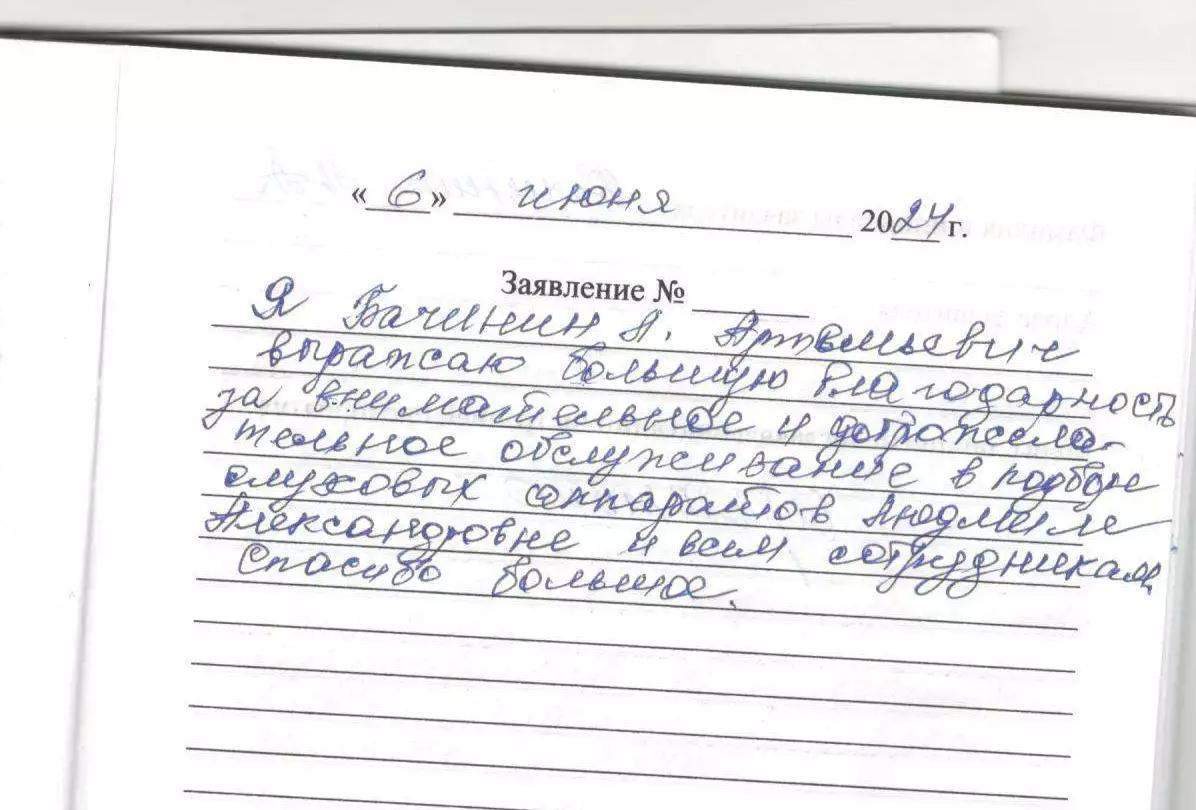 « 6 » июня 2024 г.
Заявление №
Я Бачинин А. Артемьевич
выражаю большую благодарность
за внимательное и доброжела-
тельное обслуживание в подборе
слуховых аппаратов Людмиле
Александровне и всем сотрудникам,
Спасибо большое.